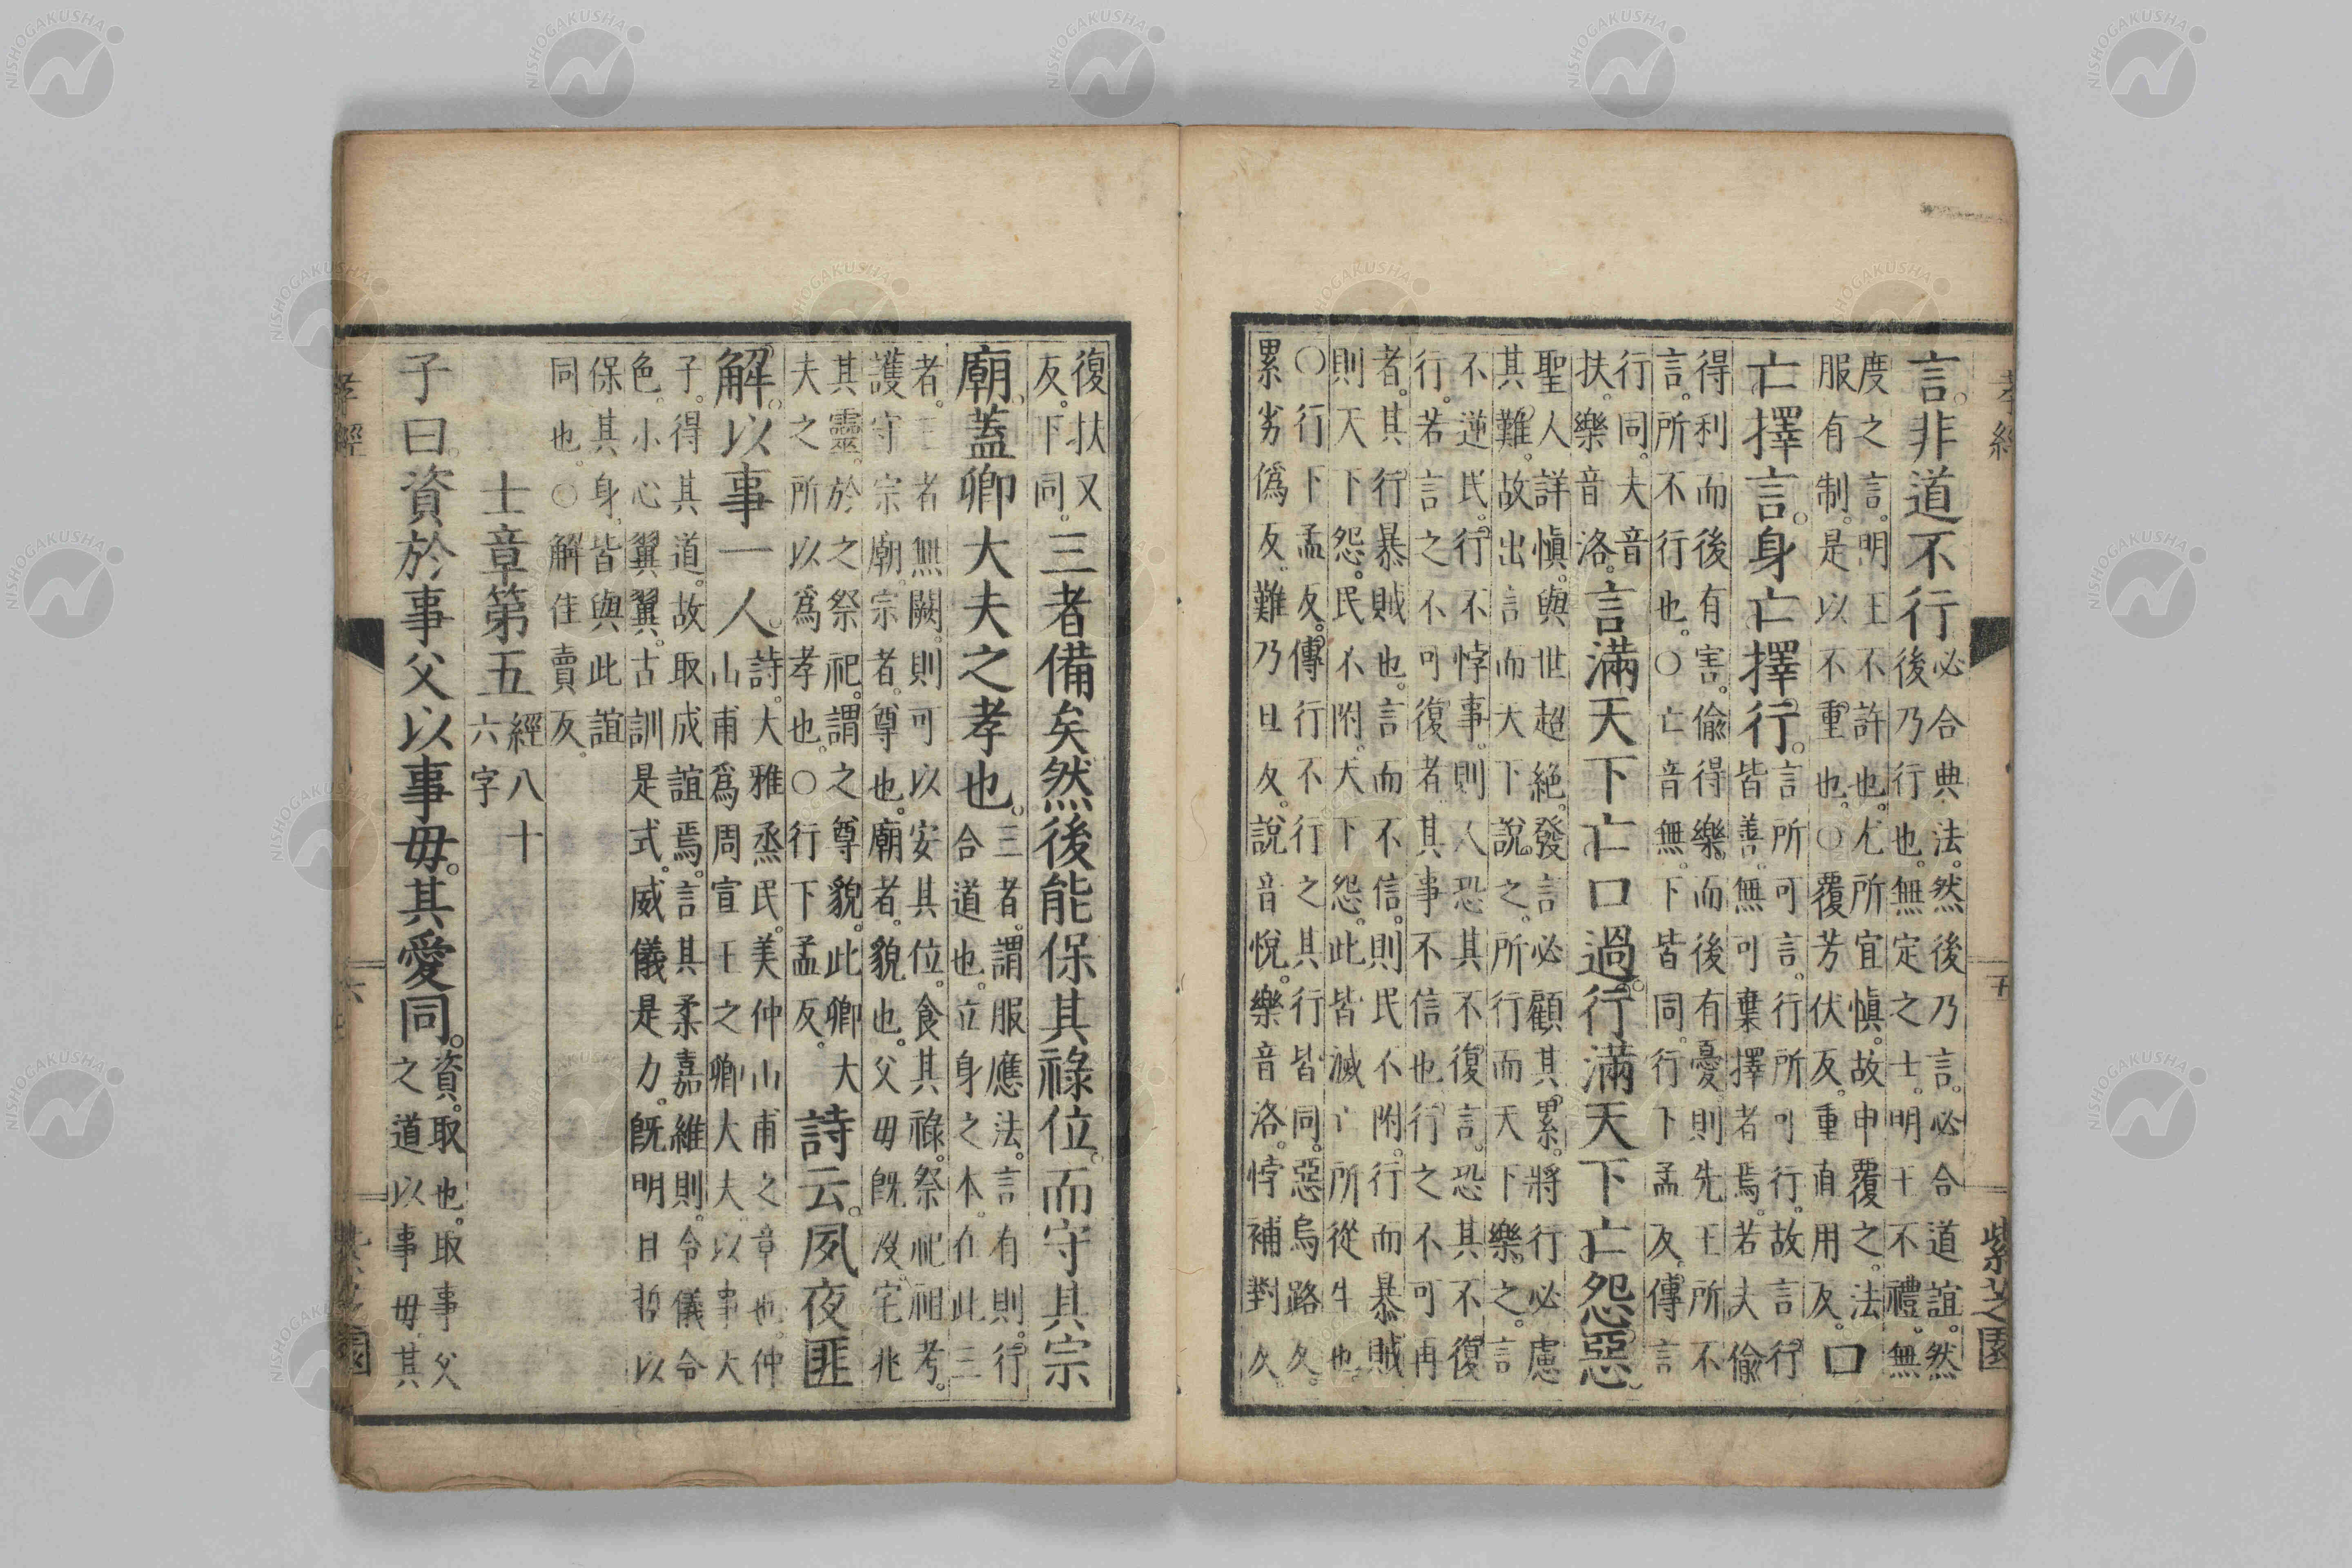 孝經　五　紫芝園
言。非道不行
必合典法。然後乃言。必合道誼。然
後乃行也。無定之士。明王不禮。無
度之言。明王不許也。尤所宜慎。故申覆之。法
服有制。是以不重也。○覆芳伏反。重直用反。
口
亡擇言。身亡擇行。
言所可言。行所可行。故言行
皆善。無可棄擇者焉。若夫偷
得利而後有害。偷得樂而後有憂。則先王所不
言。所不行也。○亡音無。下皆同。行下孟反。傳言
行同。夫音
扶。樂音洛。
言滿天下亡口過。行滿天下亡怨惡。
聖人詳慎。與世超絕。發言必顧其累。將行必慮
其難。故出言而天下說之。所行而天下樂之。言
不逆民。行不悖事。則人恐其不復言。恐其不復
行。若言之不可復者。其事不信也。行之不可再
者。其行暴賊也。言而不信。則民不附。行而暴賊
則天下怨。民不附。天下怨。此皆滅亡所從生也。
○行下孟反。傳行不行之其行皆同。惡烏路反。
累劣僞反。難乃旦反。說音悅。樂音洛。悖補對反
復扶又
反。下同。
三者備矣然後能保其祿位。而守其宗
廟。蓋卿大夫之孝也。
三者。謂服應法。言有則。行
合道也。立身之本。在此三
者。三者無闕。則可以安其位。食其祿。祭祀祖考。
護守宗廟。宗者。尊也。廟者。貌也。父母既沒。宅兆
其靈。於之祭祀。謂之尊貌。此卿大
夫之所以爲孝也。○行下孟反。
詩云。夙夜匪
解。以事一人。
詩。大雅烝民。美仲山甫之章也。仲
山甫爲周宣王之卿大夫。以事天
子。得其道。故取成誼焉。言其柔嘉維則。令儀令
色。小心翼翼。古訓是式。威儀是力。既明且哲以
保其身。皆與此誼
同也。○解佳賣反。
士章第五
經八十
六字
子曰。資於事父以事母。其愛同。
資。取也。取事父
之道以事母。其
孝經　六　紫芝園